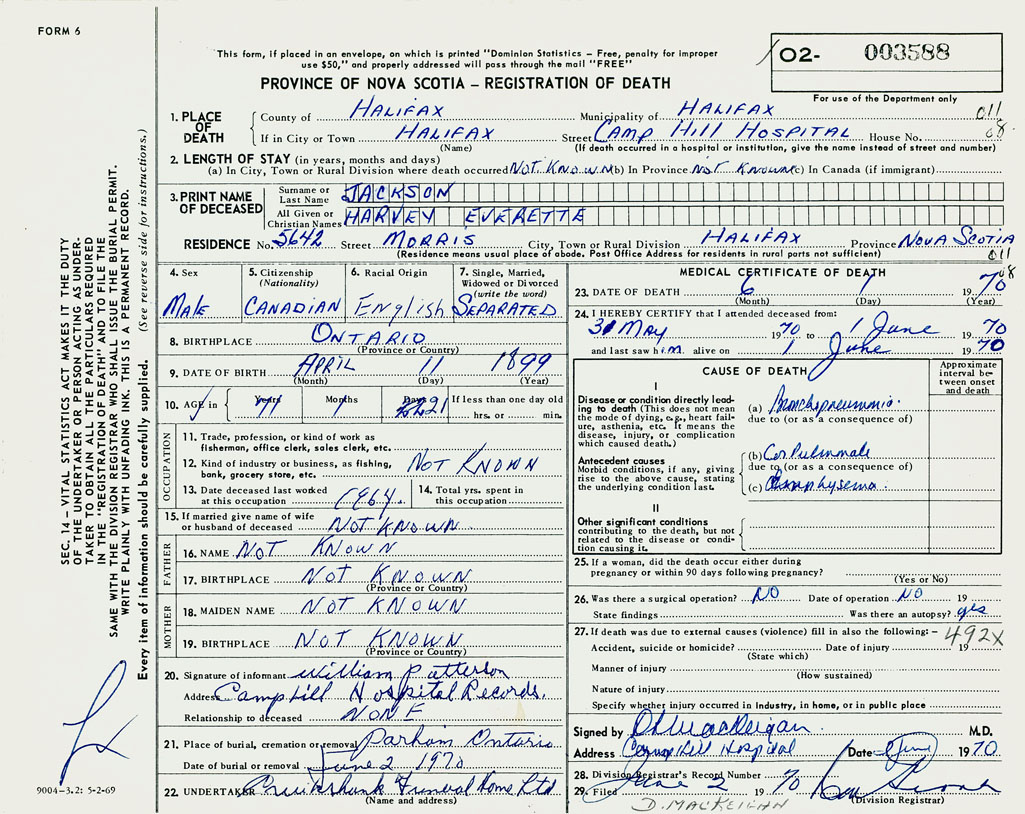 FORM 6
This form, if placed in an envelope, on which is printed "Dominion Statistics – Free, penalty for improper
use $50," and properly addressed will pass through the mail "FREE"
O2- 003588
PROVINCE OF NOVA SCOTIA – REGISTRATION OF DEATH
For use of the Department only
1. PLACE OF DEATH
County of HALIFAX Municipality of HALIFAX 011
If in City or Town HALIFAX Street CAMP HILL HOSPITAL House No. 08
(Name) (If death occurred in a hospital or institution, give the name instead of street and number)
2. LENGTH OF STAY (in years, months and days)
(a) In City, Town or Rural Division where death occurred NOT KNOWN (b) In Province NOT KNOWN (c) In Canada (if immigrant)
3. PRINT NAME OF DECEASED
Surname or Last Name JACKSON
All Given or Christian Names HARVEY EVERETTE
RESIDENCE No. 5642 Street MORRIS City, Town or Rural Division HALIFAX Province NOVA SCOTIA
(Residence means usual place of abode. Post Office Address for residents in rural parts not sufficient) 011
08
4. Sex
MALE
5. Citizenship
(Nationality)
CANADIAN
6. Racial Origin
English
7. Single, Married,
Widowed or Divorced
(write the word)
SEPARATED
8. BIRTHPLACE ONTARIO
(Province or Country)
9. DATE OF BIRTH APRIL 11 1899
(Month) (Day) (Year)
10. AGE in 71 Years 1 Months 21 Days If less than one day old
hrs. or min.
OCCUPATION
11. Trade, profession, or kind of work as
fisherman, office clerk, sales clerk, etc.
12. Kind of industry or business, as fishing, NOT KNOWN
bank, grocery store, etc.
13. Date deceased last worked
at this occupation 1964.
14. Total yrs. spent in
this occupation
15. If married give name of wife
or husband of deceased NOT KNOWN
FATHER
16. NAME NOT KNOWN
17. BIRTHPLACE NOT KNOWN
(Province or Country)
MOTHER
18. MAIDEN NAME NOT KNOWN
19. BIRTHPLACE NOT KNOWN
(Province or Country)
20. Signature of informant William Patterson
Address Camp Hill Hospital Records.
Relationship to deceased NONE
21. Place of burial, cremation or removal Parham Ontario
Date of burial or removal June 2 1970
22. UNDERTAKER Cruikshank Funeral Home Ltd
(Name and address)
MEDICAL CERTIFICATE OF DEATH
23. DATE OF DEATH 6 1 1970
(Month) (Day) (Year)
24. I HEREBY CERTIFY that I attended deceased from:
31 May 1970 to 1 June 1970
and last saw him alive on 1 June 1970
CAUSE OF DEATH
Approximate
interval be-
tween onset
and death
I
Disease or condition directly lead-
ing to death (This does not mean
the mode of dying, e.g., heart fail-
ure, asthenia, etc. It means the
disease, injury, or complication
which caused death.)
(a) Bronchopneumonia.
due to (or as a consequence of)
Antecedent causes
Morbid conditions, if any, giving
rise to the above cause, stating
the underlying condition last.
(b) Cor Pulmonale
due to (or as a consequence of)
(c) Emphysema.
II
Other significant conditions
contributing to the death, but not
related to the disease or condi-
tion causing it.
25. If a woman, did the death occur either during
pregnancy or within 90 days following pregnancy?
(Yes or No)
26. Was there a surgical operation? NO Date of operation NO 19
State findings Was there an autopsy? yes
27. If death was due to external causes (violence) fill in also the following:– 492X
Accident, suicide or homicide? Date of injury 19
(State which)
Manner of injury
(How sustained)
Nature of injury
Specify whether injury occurred in industry, in home, or in public place
Signed by M.D.
Address Camp Hill Hospital Date 2 June 1970
28. Division Registrar's Record Number
29. Filed June 2 1970
(Division Registrar)
D. MACKEIGAN
SEC. 14 – VITAL STATISTICS ACT MAKES IT THE DUTY
OF THE UNDERTAKER OR PERSON ACTING AS UNDER-
TAKER TO OBTAIN ALL THE PARTICULARS REQUIRED
IN THE "REGISTRATION OF DEATH" AND TO FILE THE
SAME WITH THE DIVISION REGISTRAR WHO SHALL ISSUE THE BURIAL PERMIT.
WRITE PLAINLY WITH UNFADING INK. THIS IS A PERMANENT RECORD.
Every item of information should be carefully supplied. (See reverse side for instructions.)
9004-3.2: 5-2-69